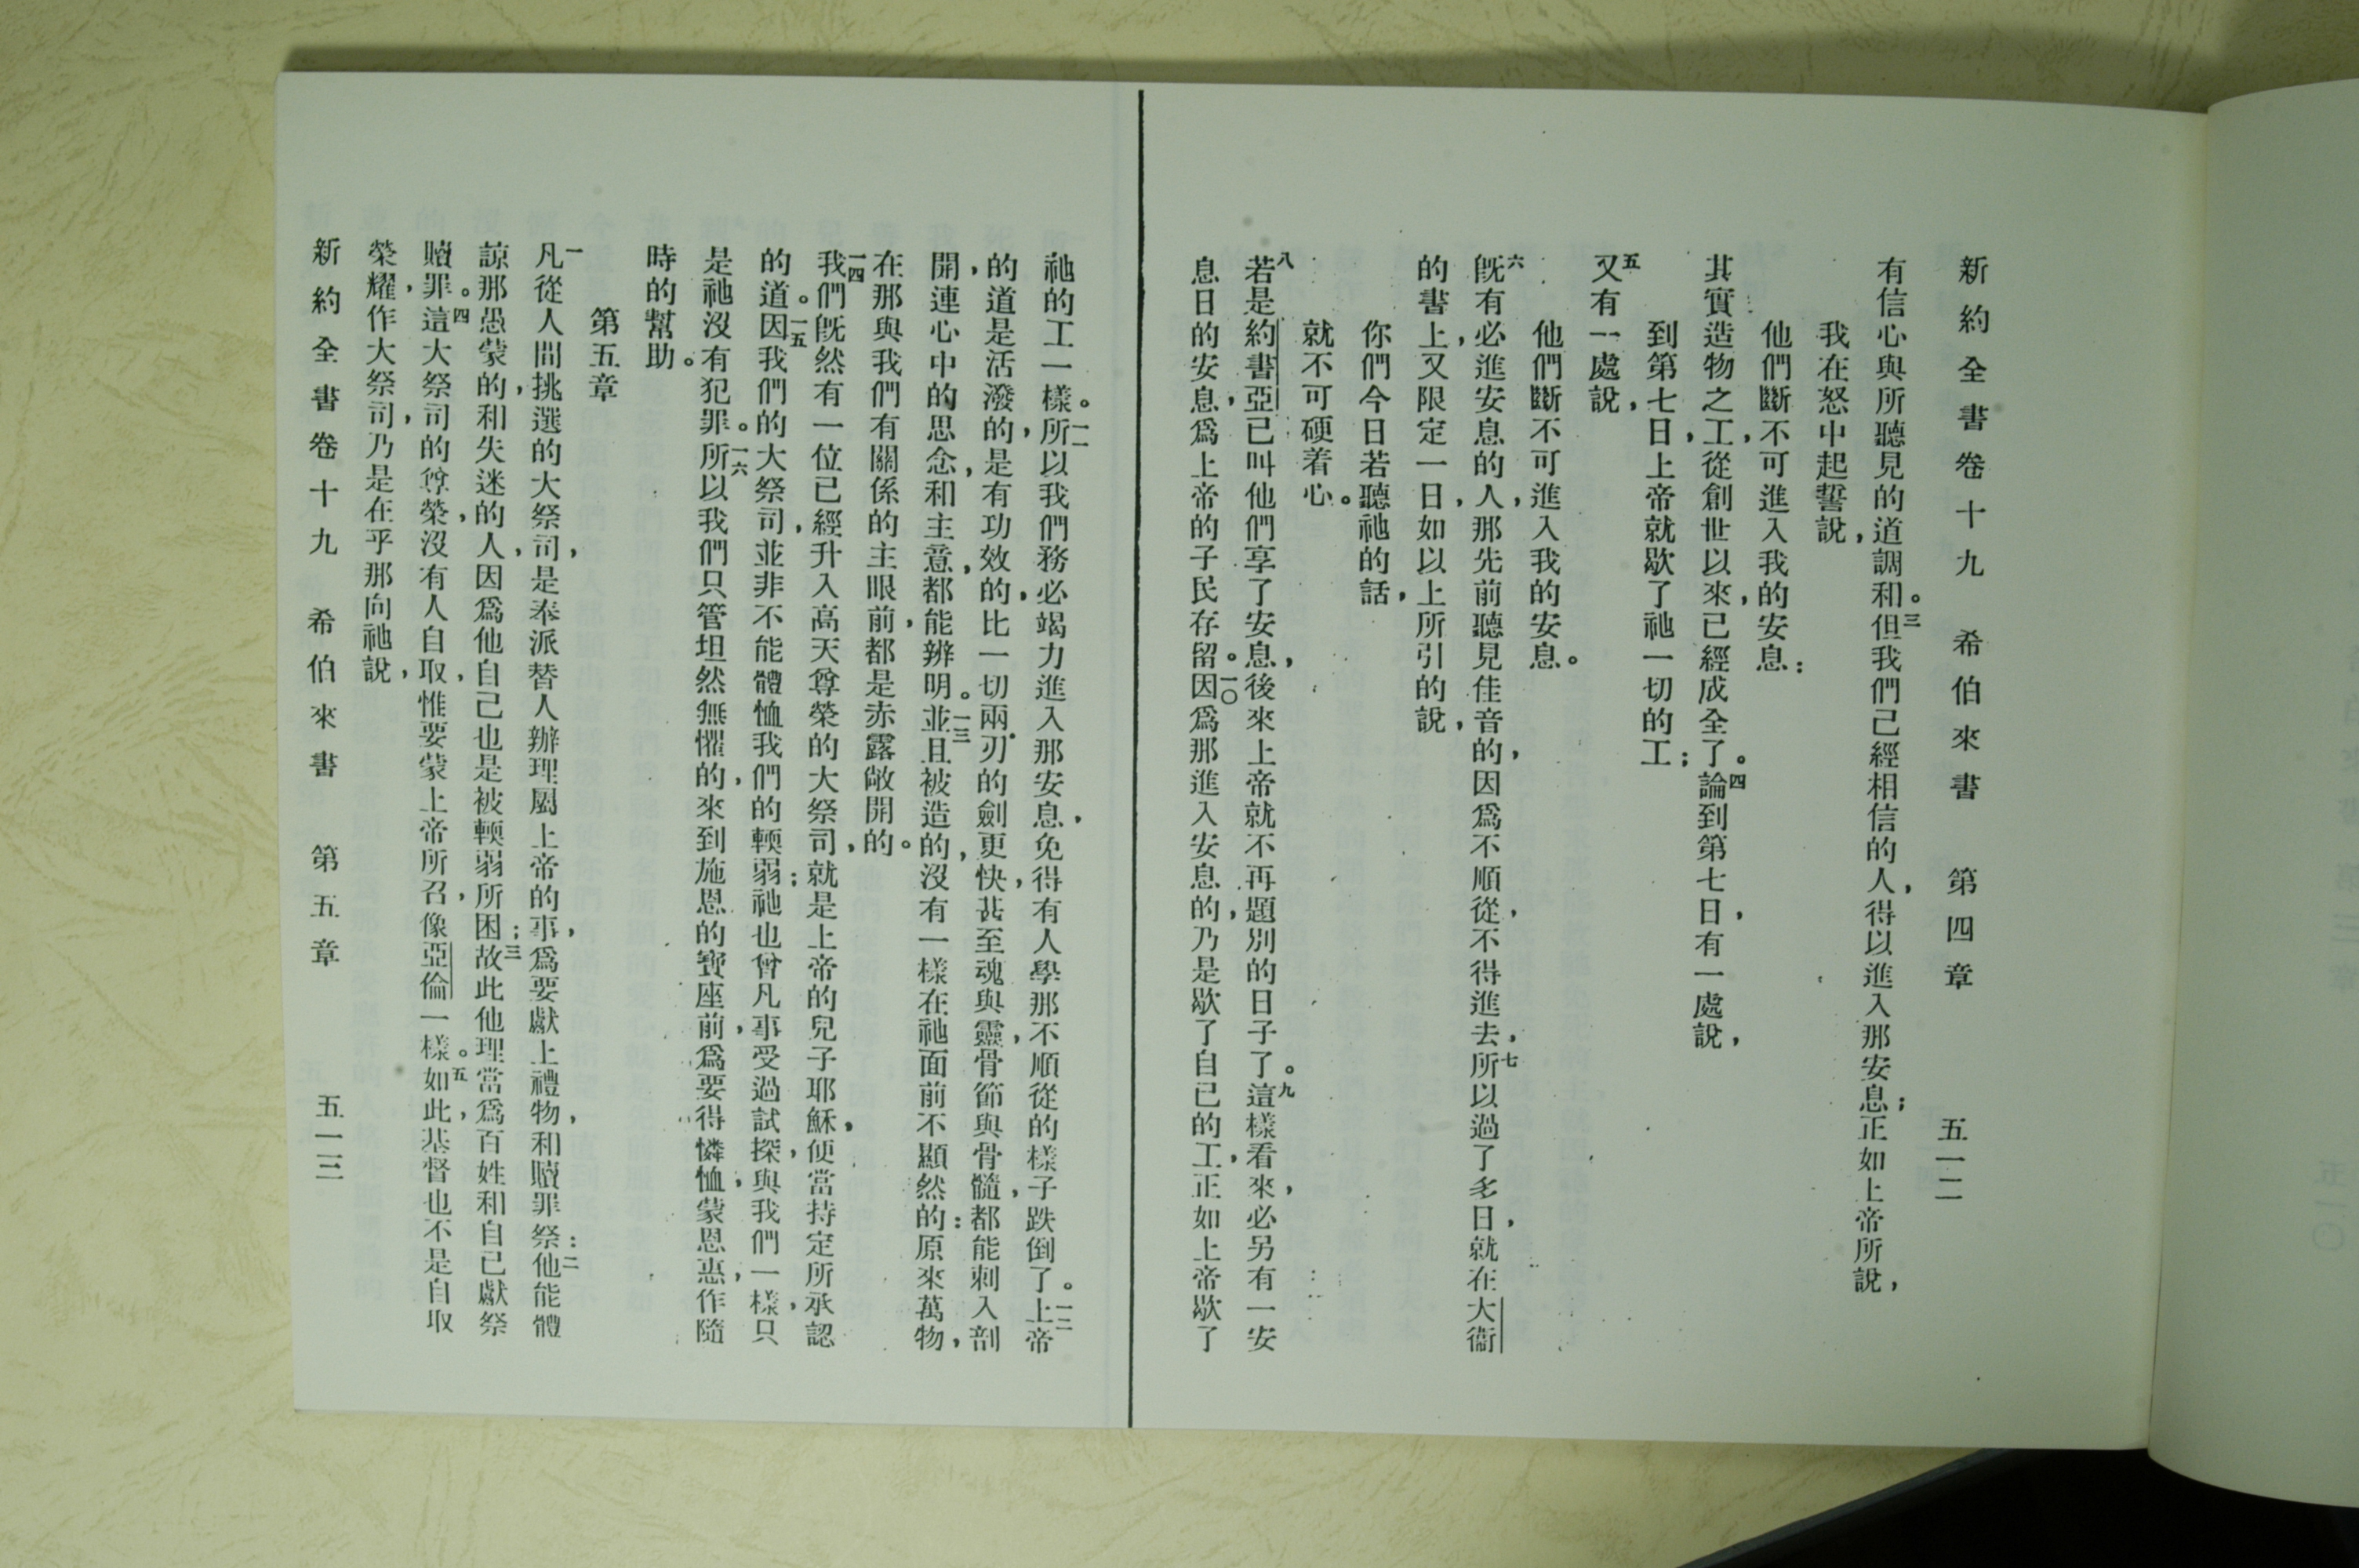 新約全書卷十九 希伯來書 第四章 五一二
有信心與所聽見的道調和。三但我們已經相信的人,得以進入那安息;正如上帝所說,
我在怒中起誓說,
他們斷不可進入我的安息:
其實造物之工,從創世以來,已經成全了。四論到第七日,有一處說,
到第七日,上帝就歇了祂一切的工;
五又有一處說,
他們斷不可進入我的安息。
六旣有必進安息的人,那先前聽見佳音的,因爲不順從,不得進去,七所以過了多日,就在大衞
的書上,又限定一日,如以上所引的說,
你們今日若聽祂的話,
就不可硬着心。
八若是約書亞已叫他們享了安息,後來上帝就不再題別的日子了。九這樣看來,必另有一安
息日的安息,爲上帝的子民存留。一〇因爲那進入安息的,乃是歇了自己的工,正如上帝歇了
祂的工一樣。一一所以我們務必竭力進入那安息,免得有人學那不順從的樣子跌倒了。一二上帝
的道是活潑的,是有功效的,比一切兩刃的劍更快,甚至魂與靈,骨節與骨髓,都能刺入剖
開,連心中的思念,和主意,都能辨明。一三並且被造的,沒有一樣在祂面前不顯然的:原來萬物,
在那與我們有關係的主眼前,都是赤露敞開的。
一四我們旣然有一位已經升入高天尊榮的大祭司,就是上帝的兒子耶穌,便當持定所承認
的道。一五因我們的大祭司,並非不能體恤我們的輭弱;祂也曾凡事受過試探,與我們一樣,只
是祂沒有犯罪。一六所以我們只管坦然無懼的,來到施恩的寶座前,爲要得憐恤,蒙恩惠,作隨
時的幫助。
第五章
一凡從人間挑選的大祭司,是奉派替人辦理屬上帝的事,爲要獻上禮物,和贖罪祭:二他能體
諒那愚蒙的,和失迷的人,因爲他自己也是被輭弱所困;三故此他理當爲百姓和自己獻祭
贖罪。四這大祭司的尊榮,沒有人自取,惟要蒙上帝所召,像亞倫一樣。五如此,基督也不是自取
榮耀,作大祭司,乃是在乎那向祂說,
新約全書卷十九 希伯來書 第五章 五一三